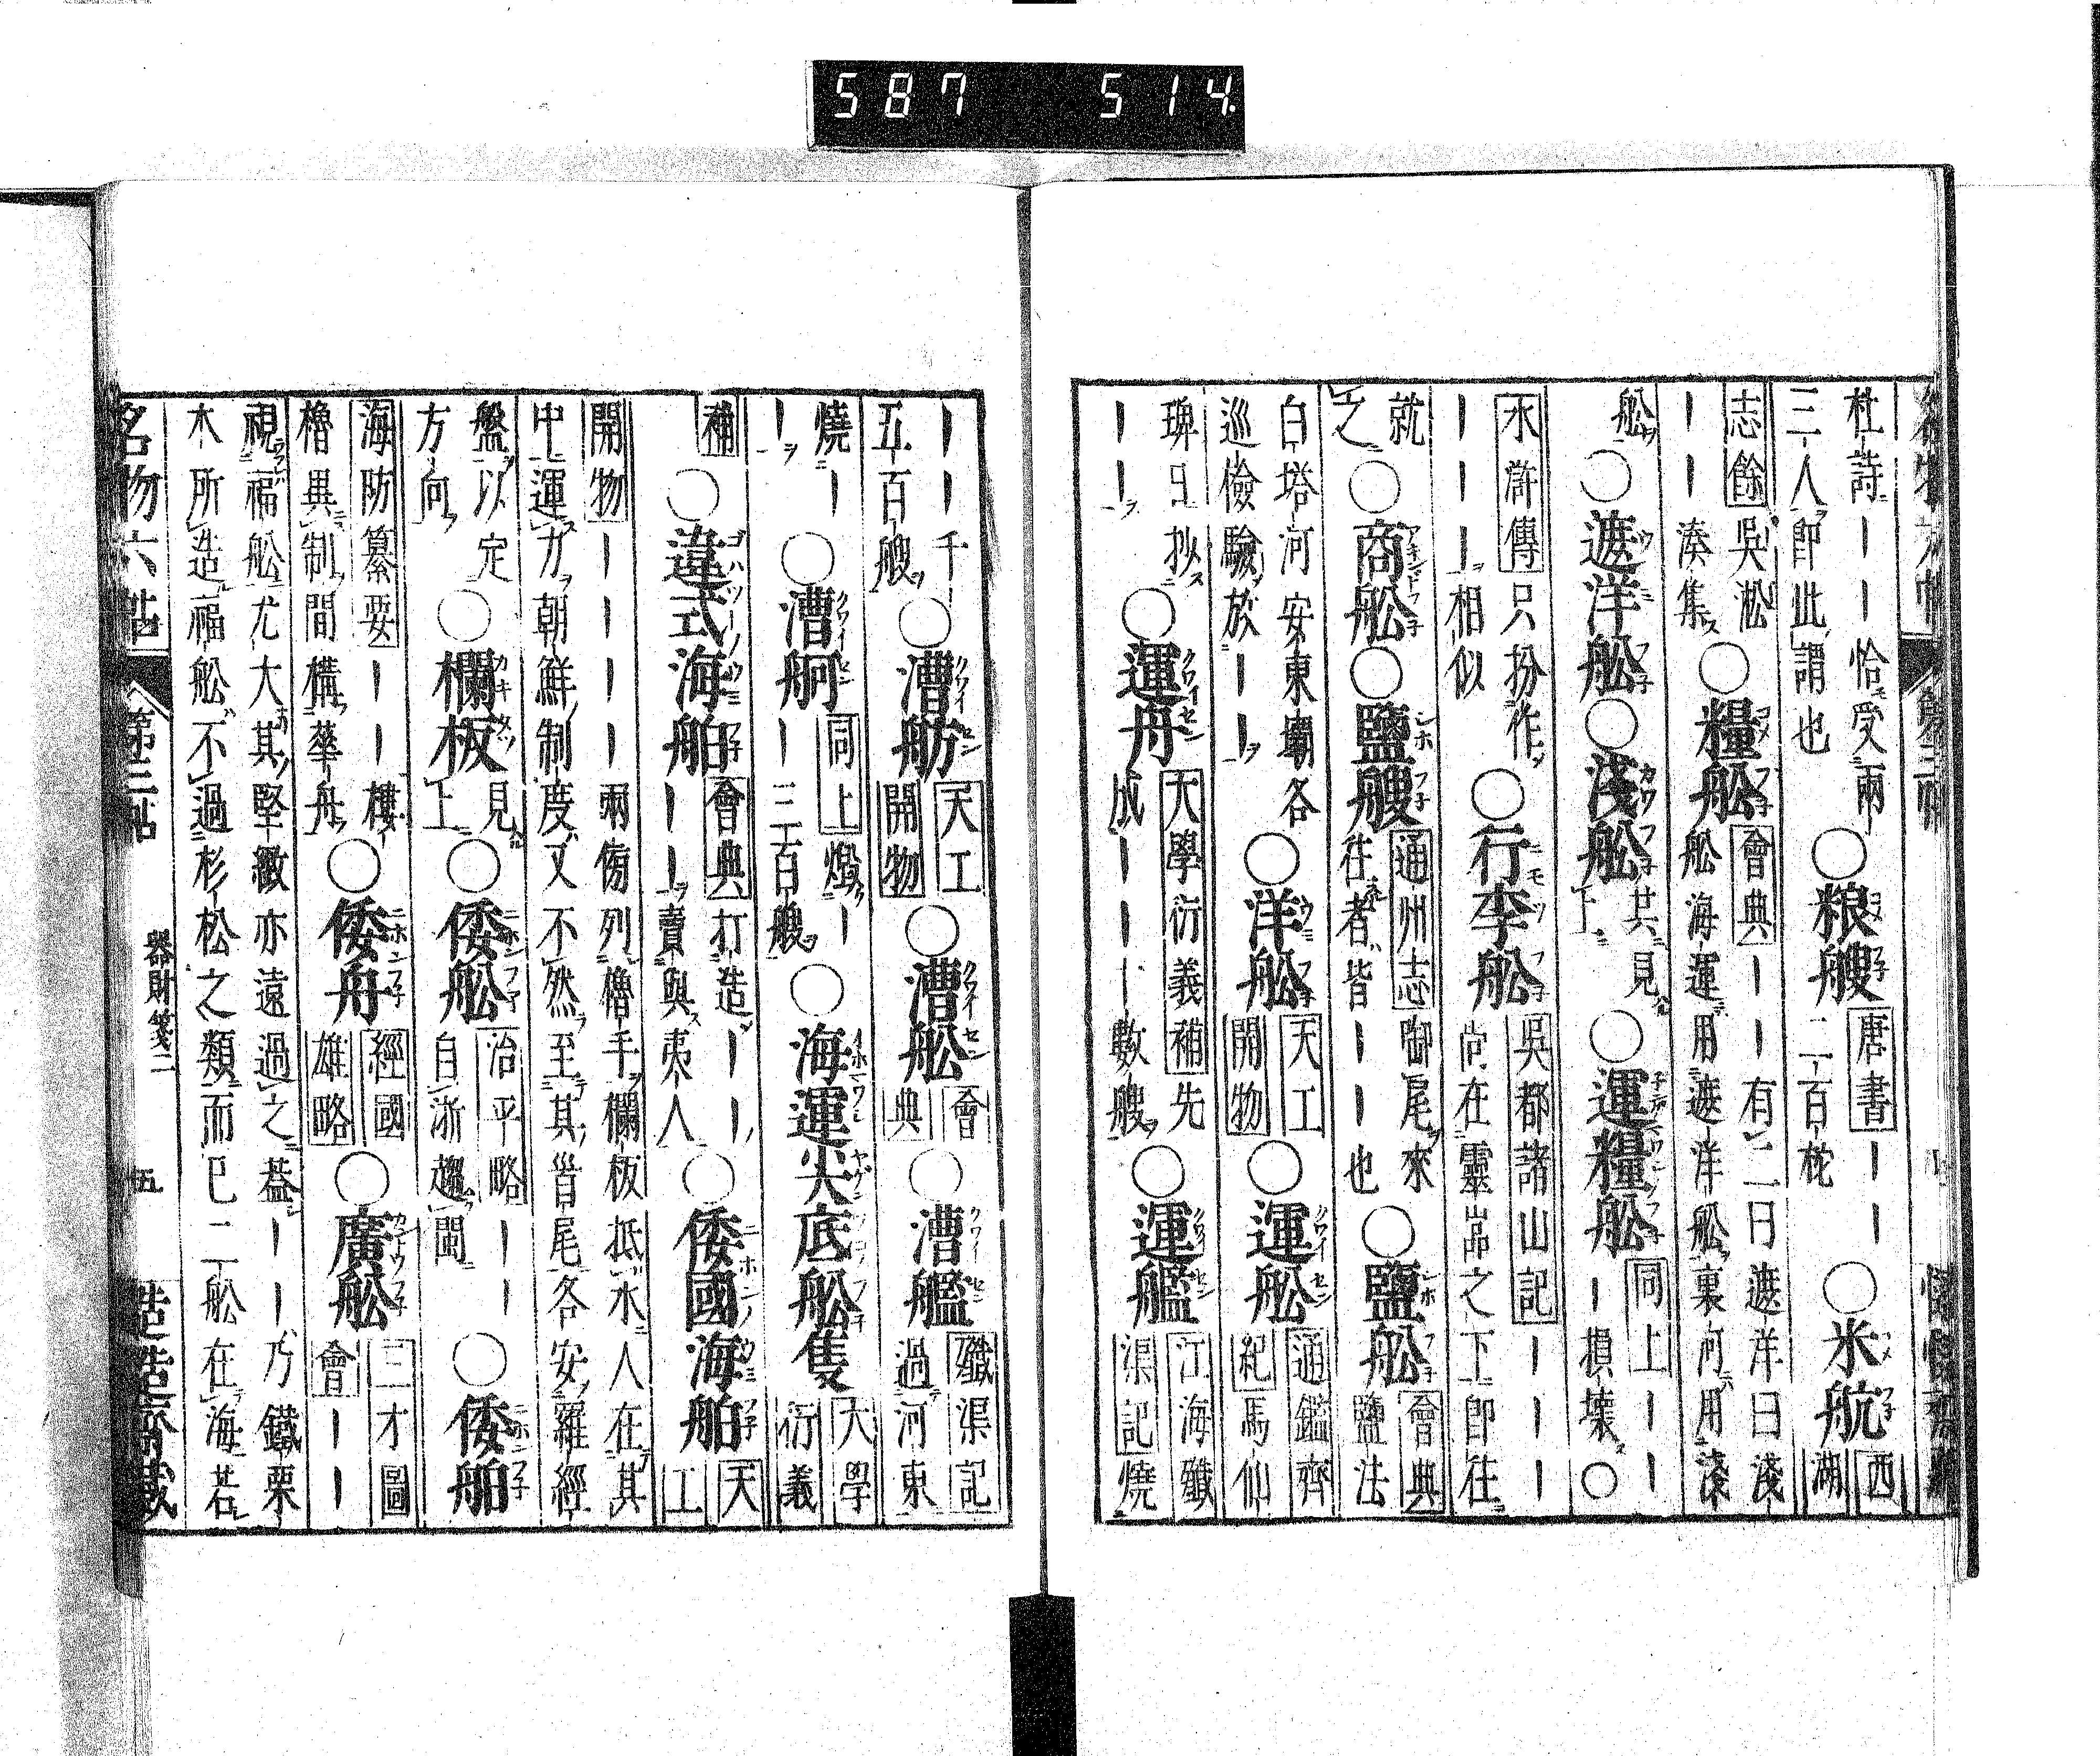 杜詩｜｜恰受兩
三人即此謂也
○粮艘
唐書｜｜
二百枕
○米航
西
湖
志餘吳淞
｜｜湊集
○糧舩
會典｜｜有二曰遮洋曰淺
舩海運用遮洋舩裏河用淺
舩
○遮洋舩○淺舩
其見
上
○運糧舩
同上｜｜
｜損壞○
水滸傳只扮作
｜｜｜相似
○行李舩
吳都諸山記｜｜｜
尚在靈嵓之下即往
就
之
○商舩○鹽艘
通州志御尾來
往者皆｜｜也
○鹽舩
會典
鹽法
白塔河安東壩各
巡儉驗放｜｜
○洋舩
天工
開物
○運舩
通鑑齊
紀馬仙
琕日抄
｜｜｜
○運舟
大學衍義補先
成｜｜｜數艘
○運艦
江海殲
渠記燒
｜｜千
五百艘
○漕舫
天工
開物
○漕舩
會
典
○漕艦
殲渠記
過河東
燒｜
｜
○漕舸
同上燬｜
｜三百艘
○海運尖底舩隻
大學
衍義
補
○違式海舶
會典打造｜｜
｜｜賣與夷人
○倭國海舶
天
工
開物｜｜｜｜兩傍列櫓手欄板抵水人在其
中運力朝鮮制度又不然至其首尾各安羅經
盤以定
方向
○欄板
見
上
○倭舩
治平略｜｜
自浙趨閩
○倭舶
海防纂要｜｜樓
櫓異制間構華舟
○倭舟
經國
雄略
○廣舩
三才圖
會｜｜
視福舩尤大其堅緻亦遠過之蓋｜｜乃鐵栗
木所造福舩不過杉松之類而已二舩在海若
名物六帖 第三帖 器財箋二 五
587 514